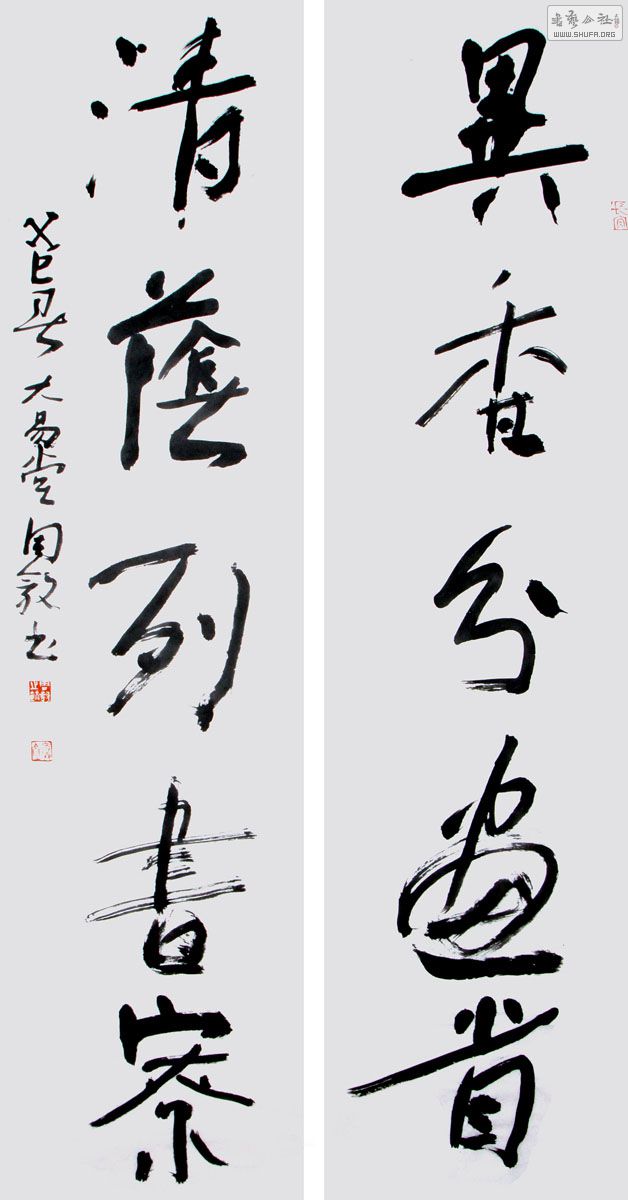 書藝公社
WWW.SHUFA.ORG
異香分畫省
清蔭列書寮
癸巳春 大易堂 周敦书